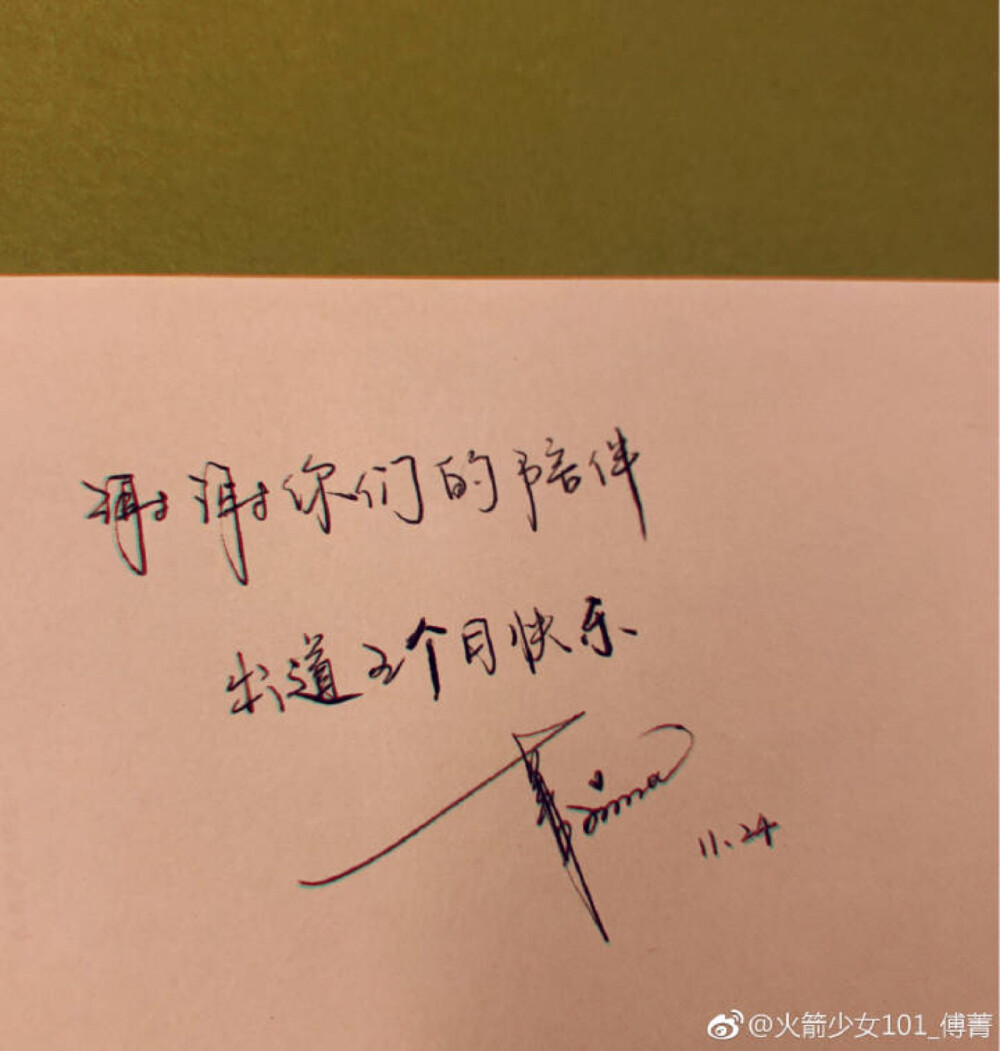 谢谢你们的陪伴
出道五个月快乐
11.24
@火箭少女101_傅菁